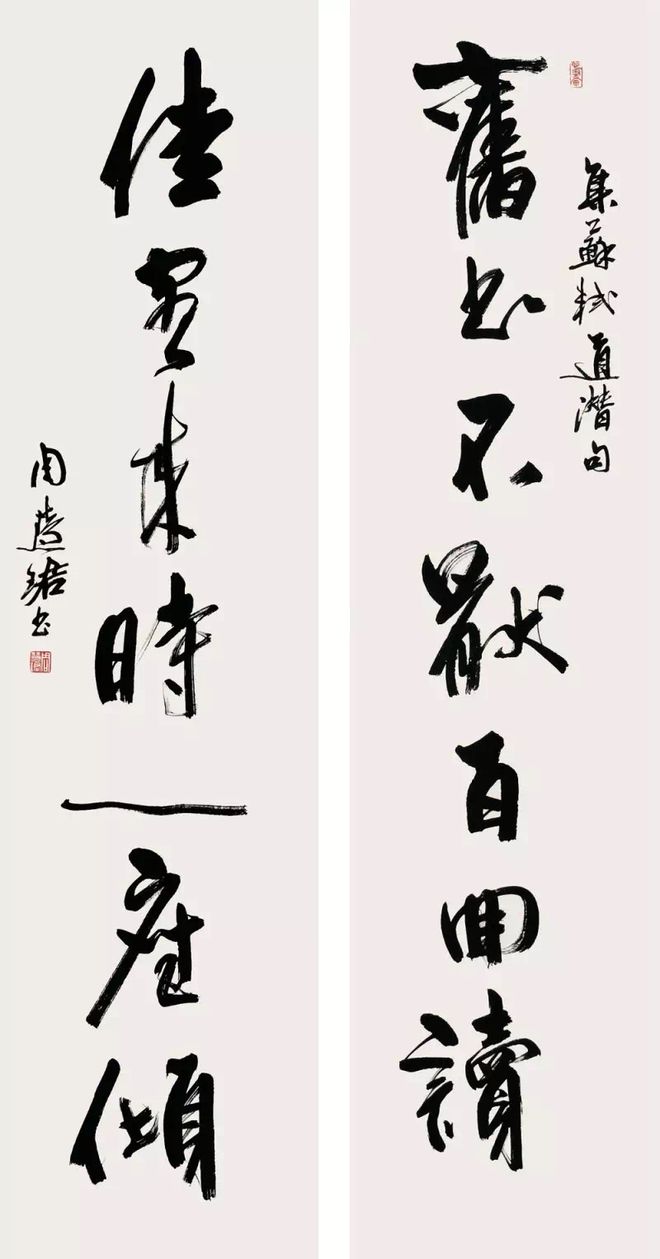 集蘇軾道潛句
舊書不猒百回讀
佳客来時一座傾
周慧珺書